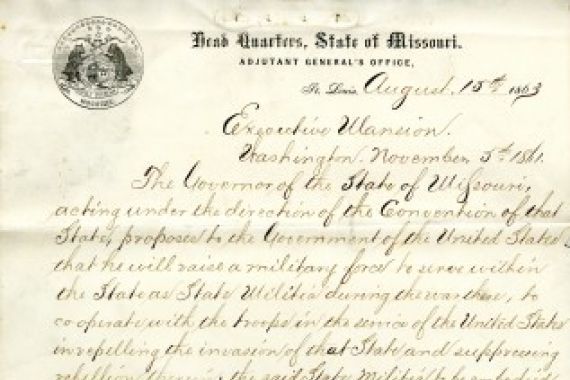 Head Quarters, State of Missouri.
ADJUTANT GENERAL'S OFFICE,
St. Louis, August. 15th 1863
Executive Mansion.
Washington. November, 5th 1861.
The Governor of the State of Missouri,
acting under the direction of the Convention of that
State, proposes to the Government of the United States
that he will raise a military force to serve within
the State as State Militia during the war there, to
cooperate with the troops in the service of the United States
in repelling the invasion of that State and suppressing
rebellion therein, the said State Militia to be embodied